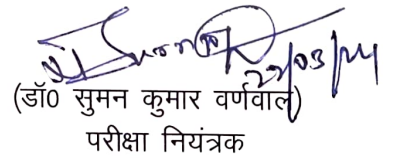 22/03/24
(डॉ0 सुमन कुमार वर्णवाल)
परीक्षा नियंत्रक